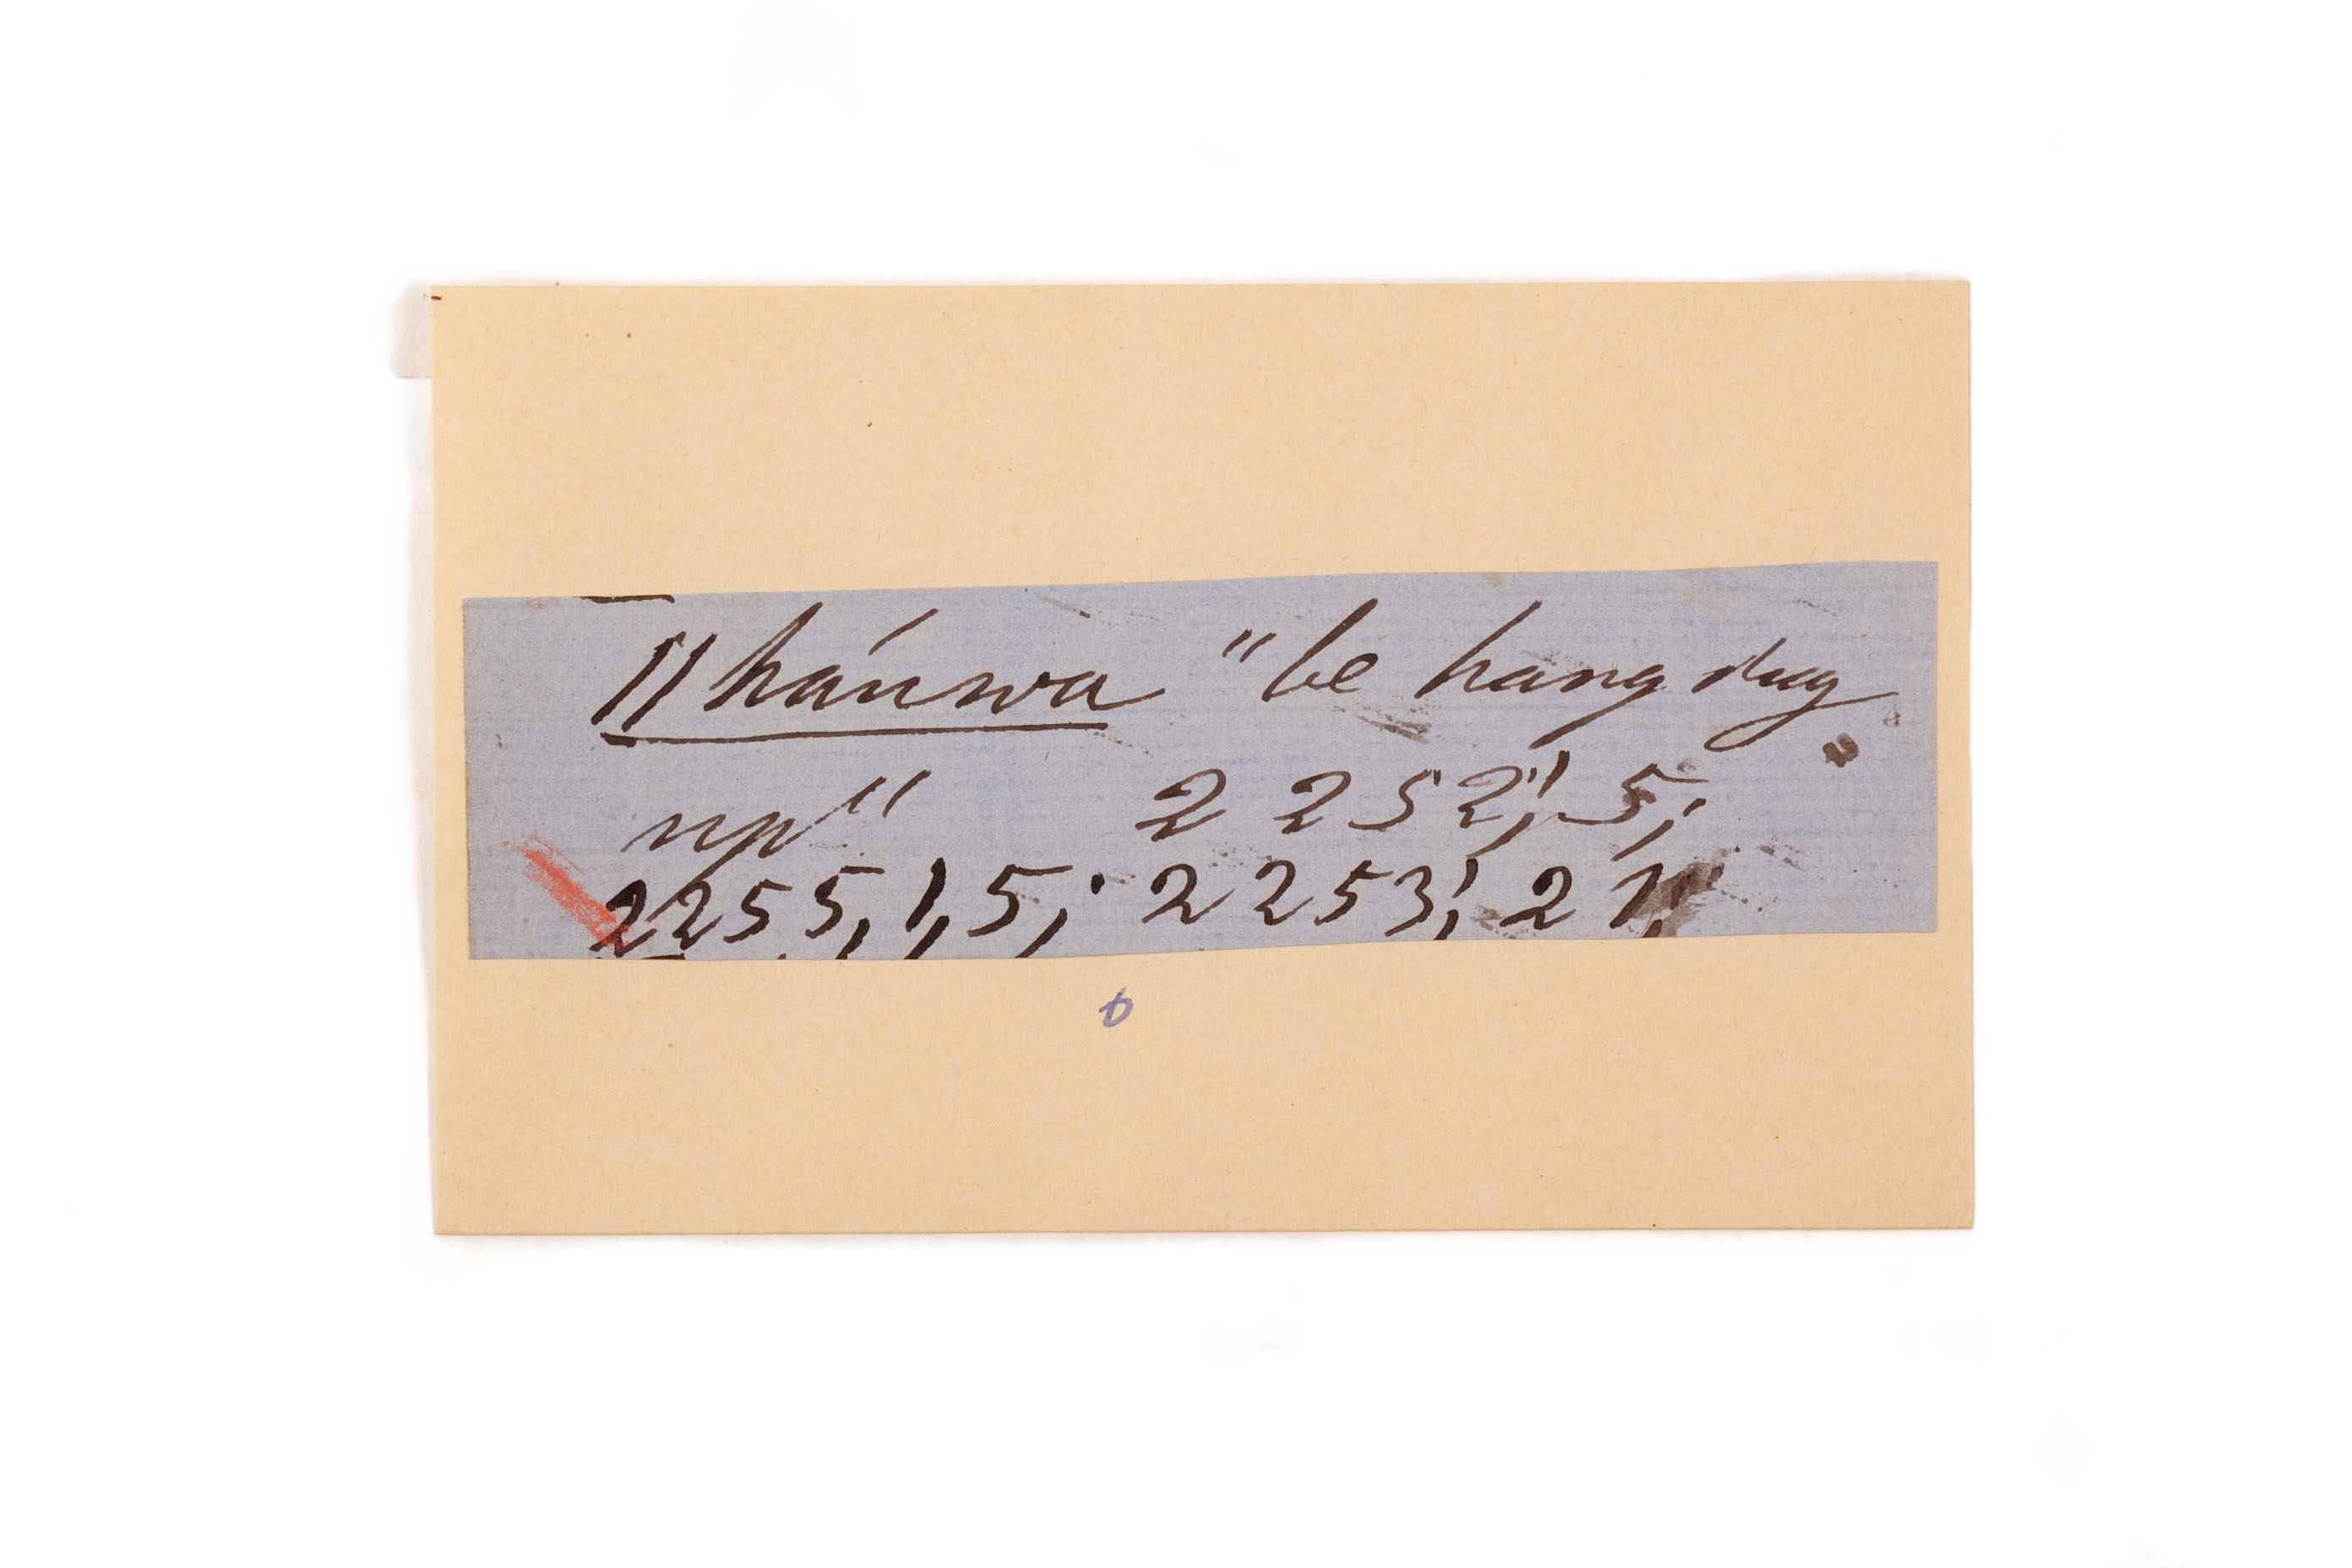 ǁhaúwa "be hang dug
up" 2252,' 5,
2255,1,5; 2253,' 21,'
6